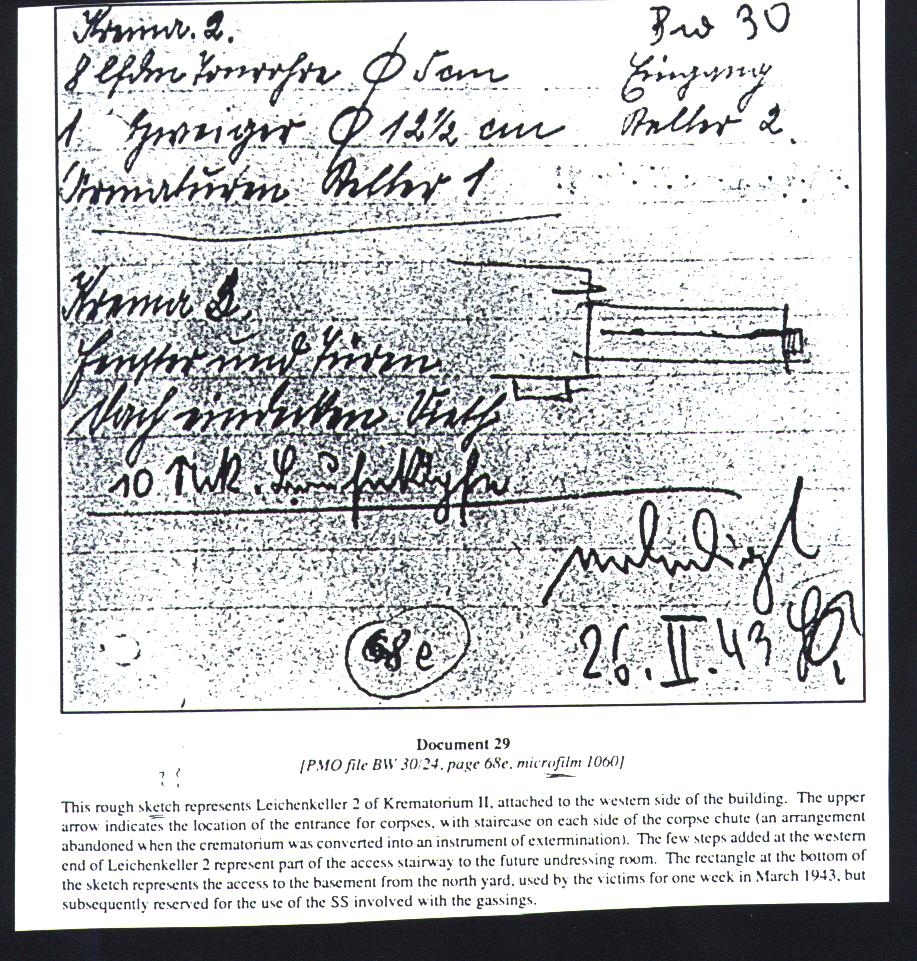 Krema. 2.
8 lfdm Tonrohre Ø 5cm
1 Zweiger Ø 12½ cm
Armaturen Keller 1
Bw 30
Eingang
Keller 2.
Krema 2.
Fenster und Türen
Dach eindecken
10 Stck.
erledigt
26.II.43
68e
Document 29
[PMO file BW 30/24, page 68e, microfilm 1060]
? {
This rough sketch represents Leichenkeller 2 of Krematorium II, attached to the western side of the building. The upper
arrow indicates the location of the entrance for corpses, with staircase on each side of the corpse chute (an arrangement
abandoned when the crematorium was converted into an instrument of extermination). The few steps added at the western
end of Leichenkeller 2 represent part of the access stairway to the future undressing room. The rectangle at the bottom of
the sketch represents the access to the basement from the north yard, used by the victims for one week in March 1943, but
subsequently reserved for the use of the SS involved with the gassings.